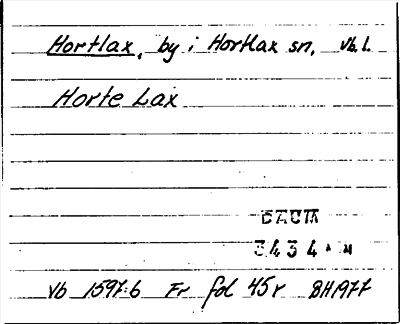 Hortlax, by i Hortlax sn, vb. l.
Horte Lax
DAUM
3434
Vb 1597:6 Fr fol 45r BH1977